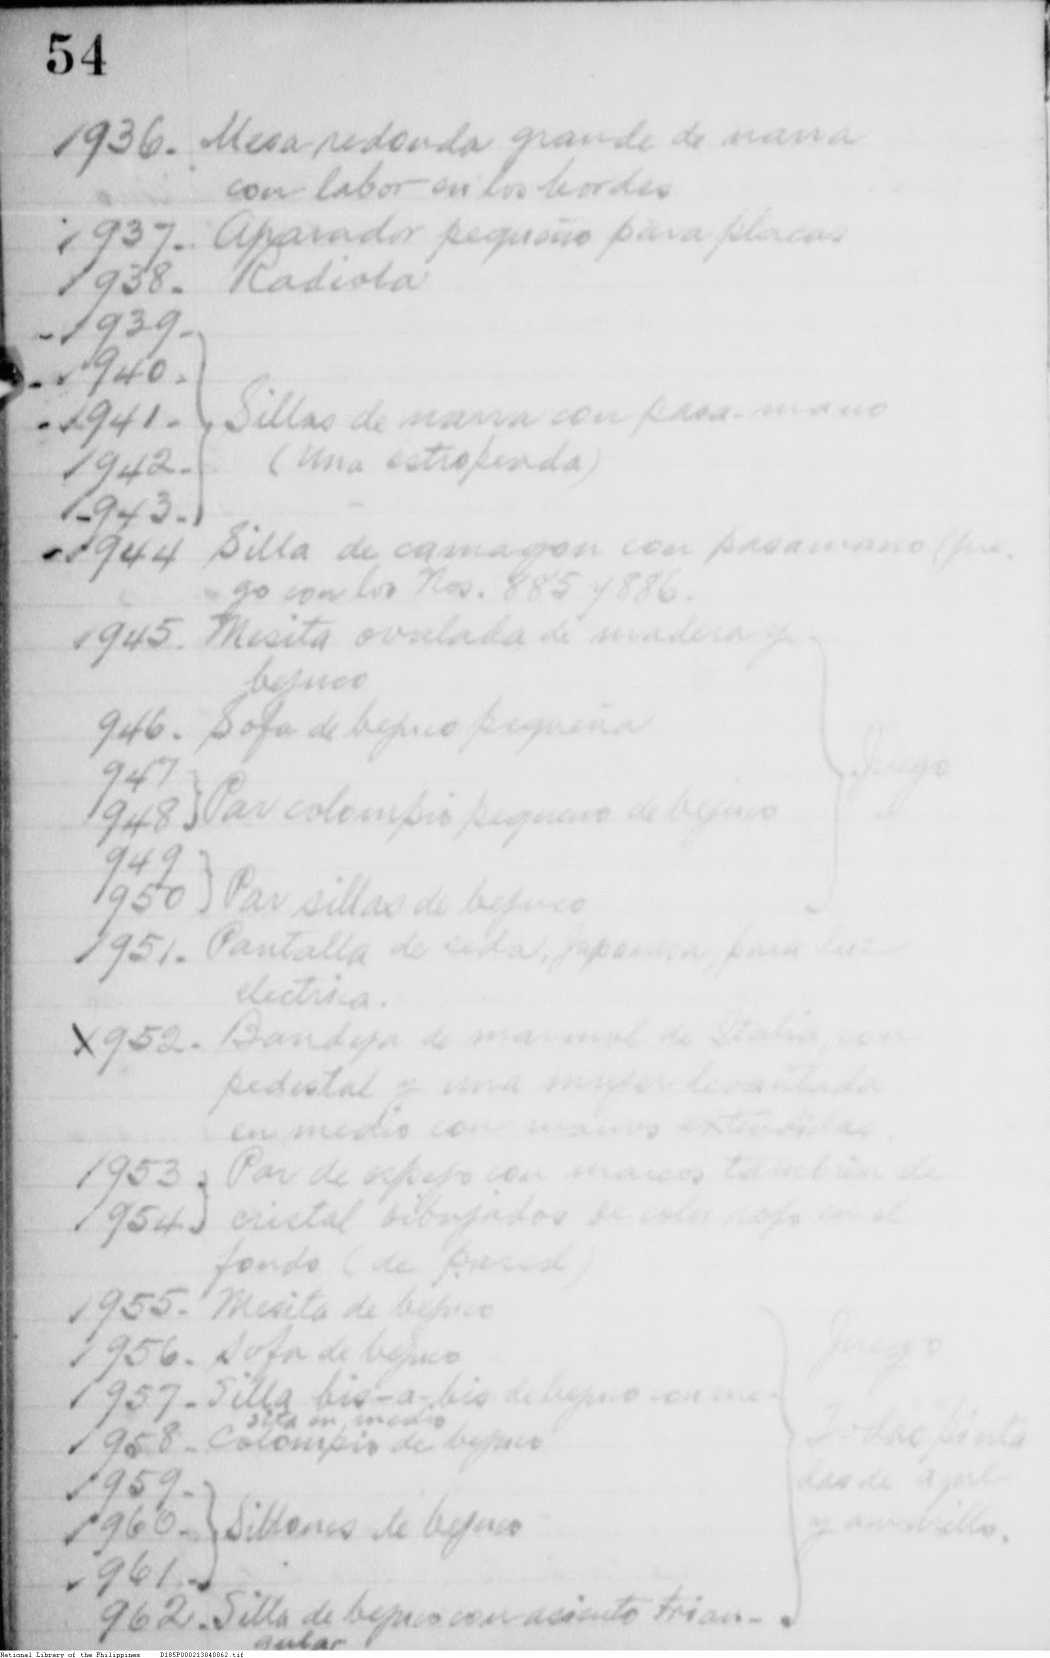 54
1936. Mesa redonda grande de narra
con labor en los bordes
1937. Aparador pequeño para placas
1938. Radiola
1939.
1940.
1941. Sillas de narra con pasa-mano
1942. (una estropeada)
1943.
1944 Silla de camagon con pasamano (jue-
go con los Nos. 885 y 886.
1945. Mesita ovalada de madera y
bejuco
946. Sofa de bejuco pequeña
947
1948 Par colompio pequeno de bejuco
Juego
949
1950 Par sillas de bejuco
1951. Pantalla de seda, japonesa, para luz
electrica.
1952. Bandeja de marmol de Italia, con
pedestal y una mujer levantada
en medio con manos extendidas.
1953 Par de espejo con marcos tambien de
1954 cristal dibujados de color rojo en el
fondo (de pared)
1955. Mesita de bejuco
1956. Sofa de bejuco
Juego
1957. Silla bis-a-bis de bejuco con me-
sita en medio
1958. Colompio de bejuco
Todas pinta
das de azul
y amarillo.
1959.
1960. Sillones de bejuco
1961.
962. Silla de bejuco con asiento trian-
gular
National Library of the Philippines D185P000213040062.tif